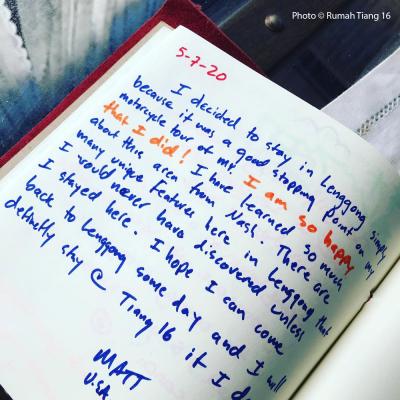 Photo © Rumah Tiang 16
5-7-20
I decided to stay in Lenggong simply
because it was a good stopping point on my
motorcycle tour of my. I am so happy
that I did! I have learned so much
about this area from Nash. There are
many unique features here in Lenggong that
I would never have discovered unless
I stayed here. I hope I can come
back to Lenggong some day and I will
definetly stay @ Tiang 16 if I
MATT
U.SA